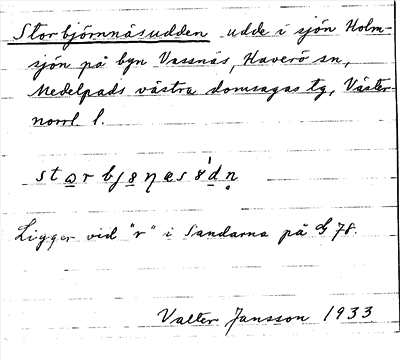 Storbjörnnäsudden udde i sjön Holm-
sjön på byn Vassnäs, Haverö sn,
Medelpads västra domsagas tg, Väster-
norrl. l.
Ligger vid "r" i Sandarna på G 78.
Valter Jansson 1933